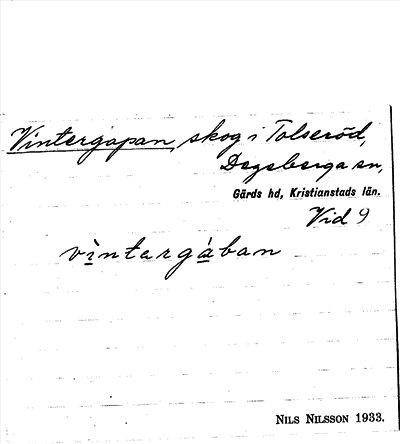 Vintergapan, skog i Tolseröd,
Degeberga sn,
Gärds hd, Kristianstads län.
Vid 9
vìntargá̱ban
NILS NILSSON 1933.